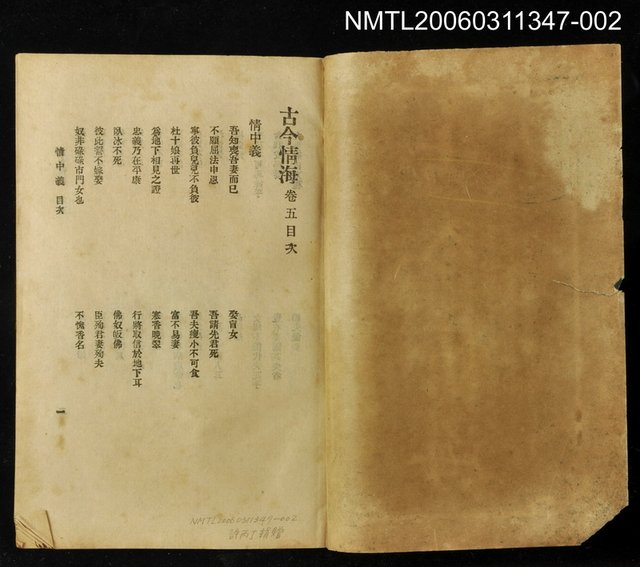 NMTL20060311347-002
古今情海 卷五目次
情中義
吾知喪吾妻而已
不願屈法申恩
寧彼負兒兒不負彼
杜十娘再世
為地下相見之證
忠義乃在平康
臥冰不死
彼此誓不嫁娶
奴非碌碌市門女也
娶盲女
吾請先君死
吾夫瘦小不可食
富不易妻
寒香晚翠
行將取信於地下耳
佛奴皈佛
臣殉君妻殉夫
不愧香名
情中義 目次
一
NMTL20060311347-002
許丙丁捐贈